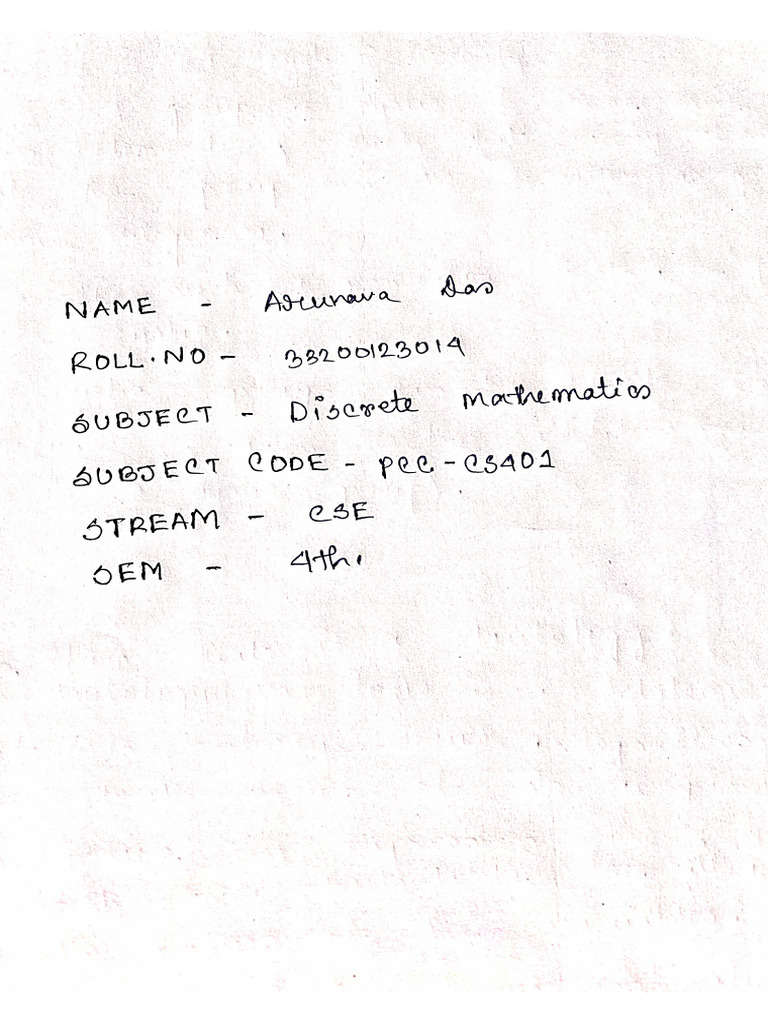 NAME - Arunava Das
ROLL.NO - 33200123014
SUBJECT - Discrete Mathematics
SUBJECT CODE - PCC-CS401
STREAM - CSE
SEM - 4th.